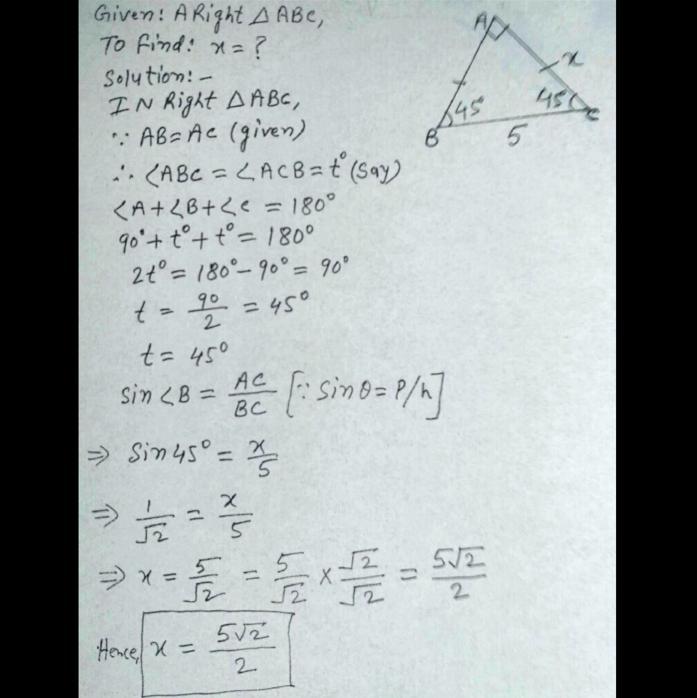 Given: A Right △ ABC,
To find: x = ?
Solution:-
IN Right △ABC,
∵ AB = AC (given)
∴ ∠ABC = ∠ACB = t° (Say)
∠A + ∠B + ∠C = 180°
90° + t° + t° = 180°
2t° = 180° - 90° = 90°
t = 90/2 = 45°
t = 45°
Sin ∠B = AC/BC [∵ Sin θ = P/h]
⇒ Sin 45° = x/5
⇒ 1/√2 = x/5
⇒ x = 5/√2 = 5/√2 × √2/√2 = 5√2/2
Hence, x = 5√2/2
A
x
45
45
B
5
C